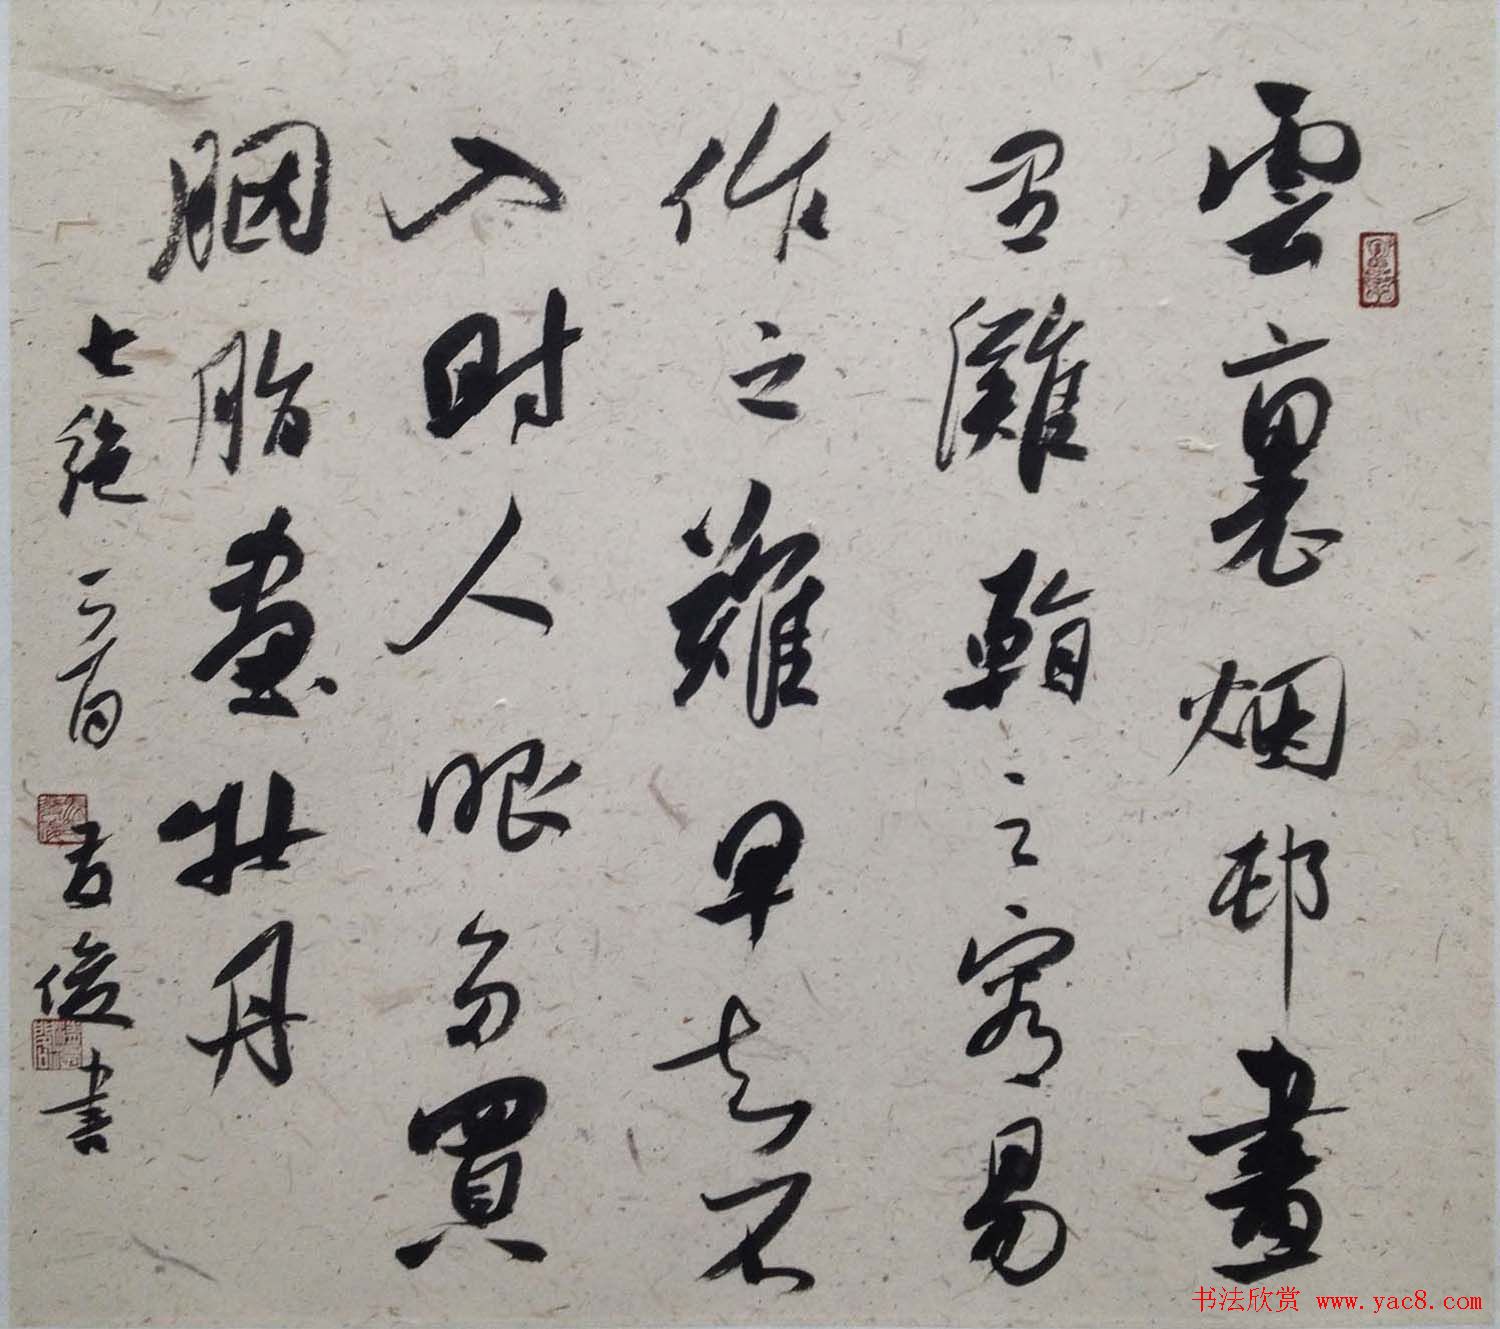 雲裏烟邨畫
里灘看之容易
作之難早知不
入時人眼多買
胭脂畫牡丹
七絕一首 俊書
书法欣赏 www.yac8.com